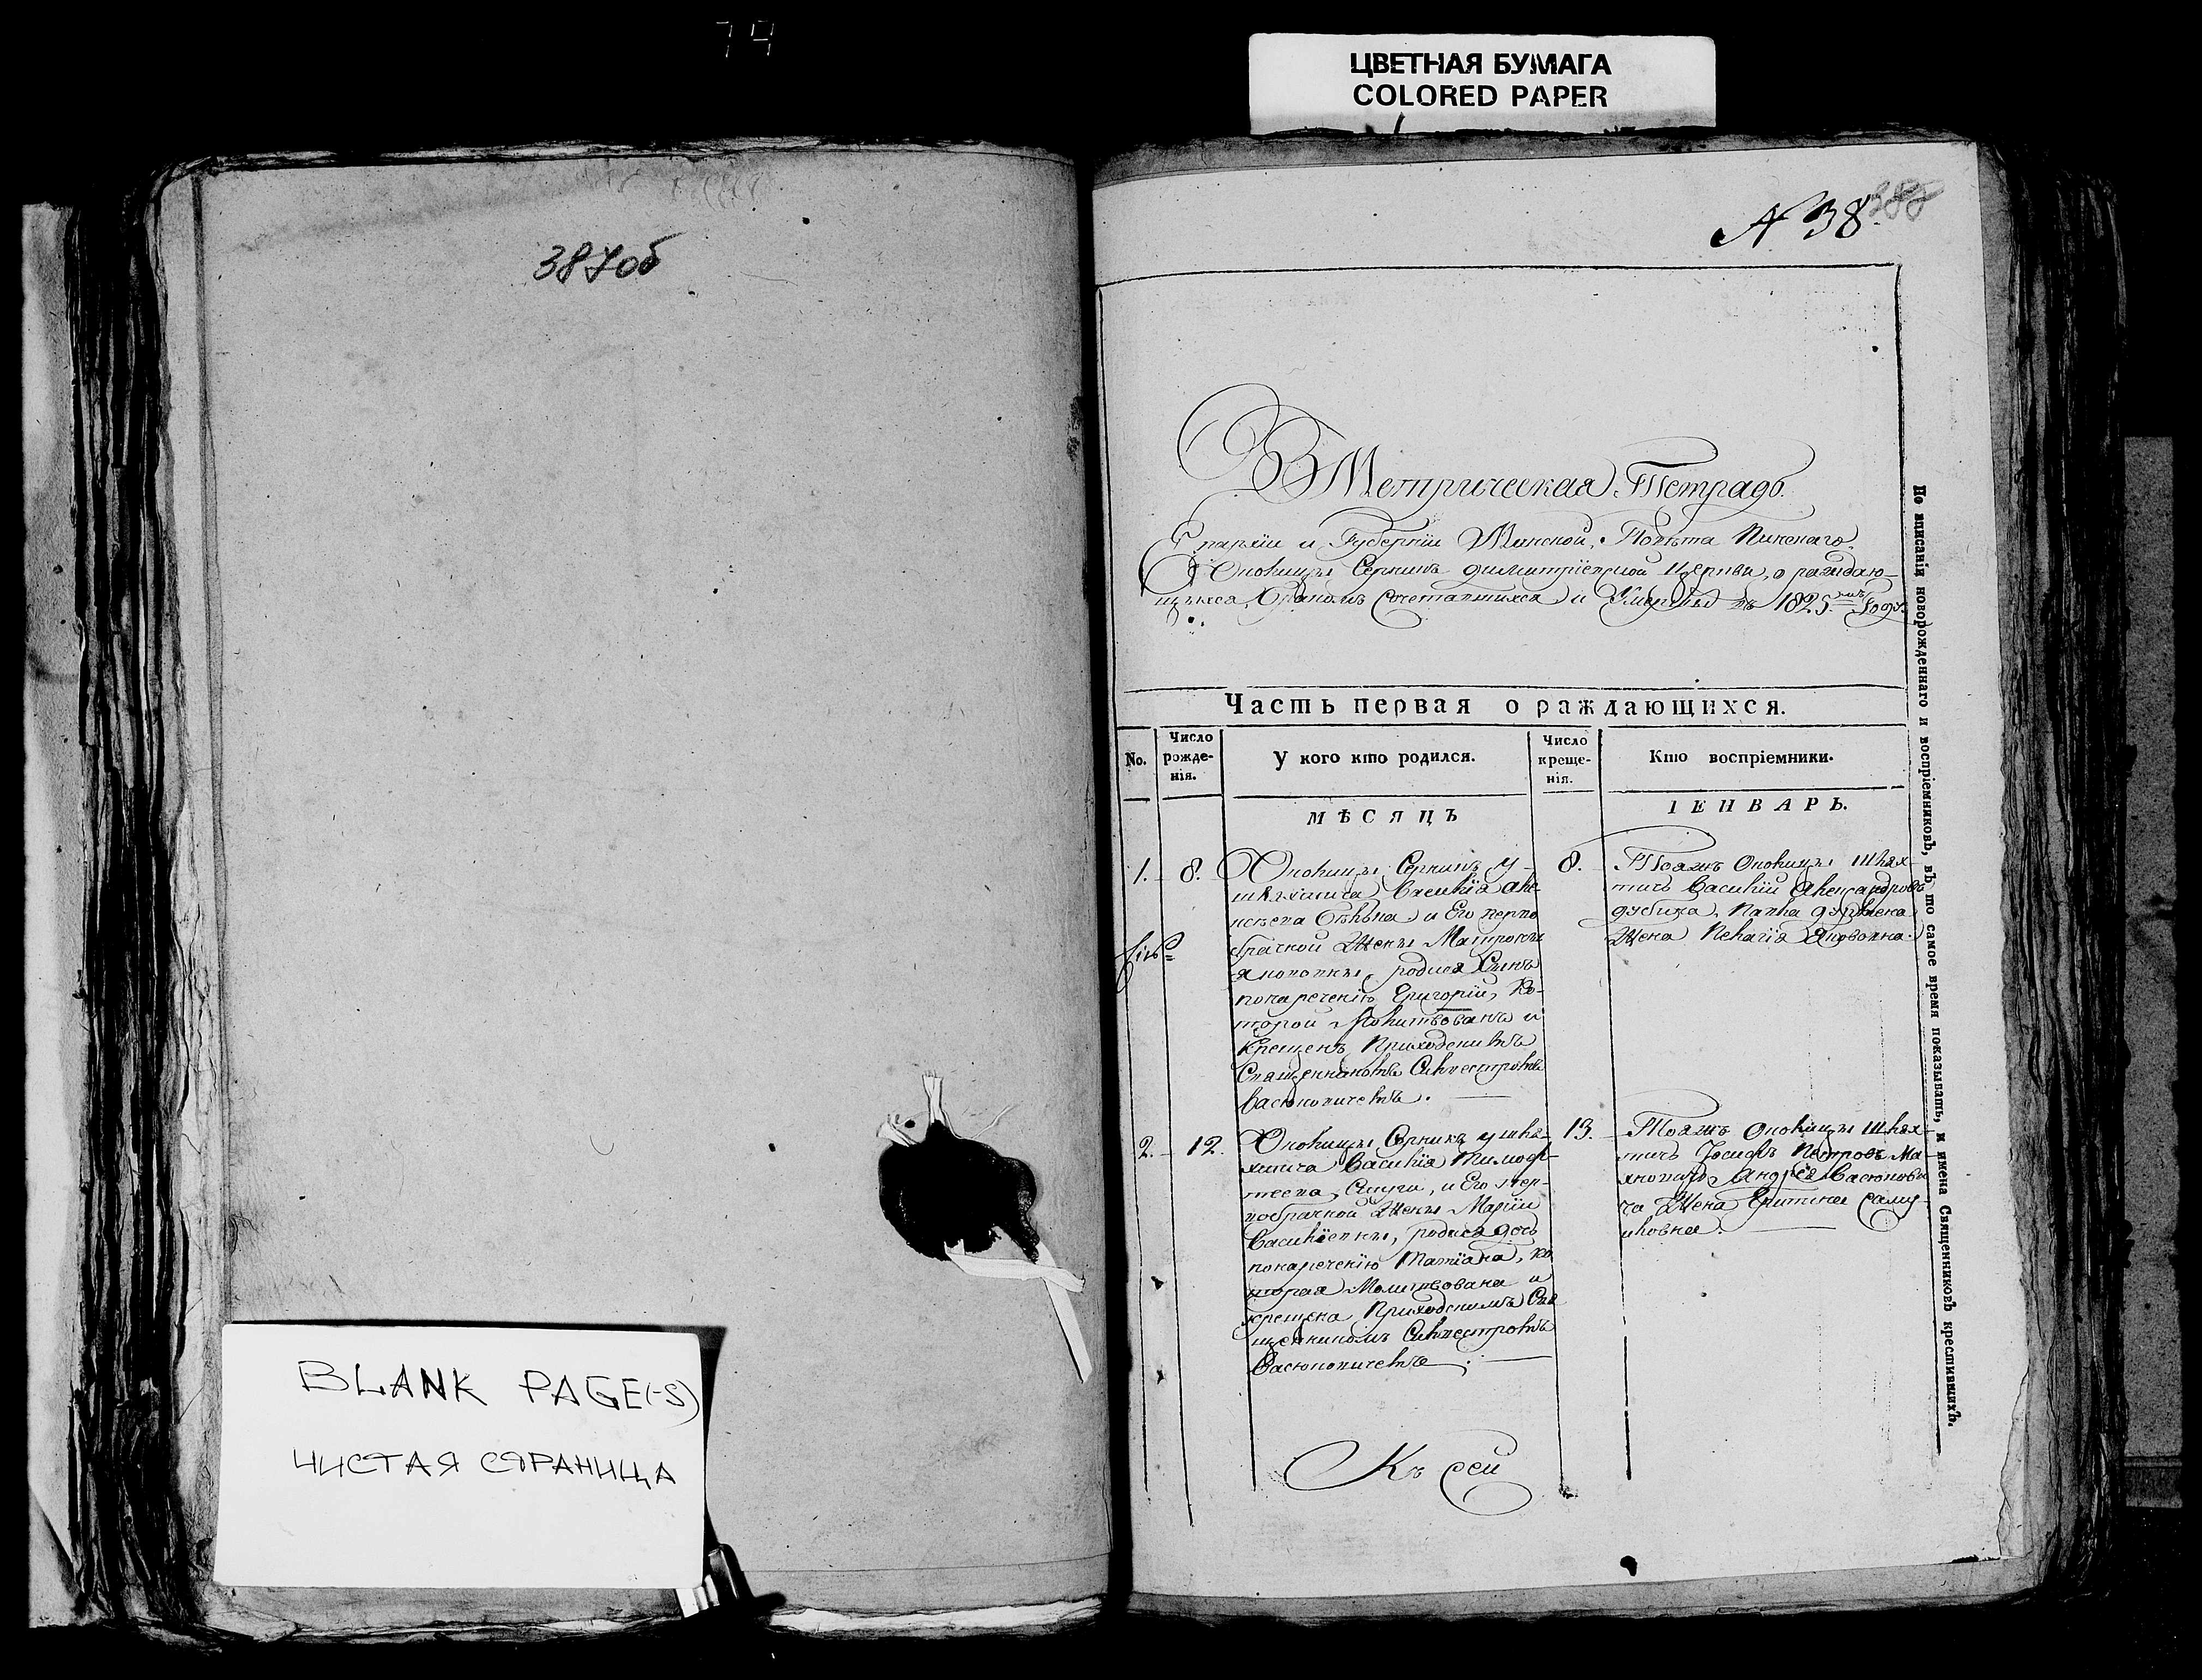 ЦВЕТНАЯ БУМАГА
COLORED PAPER
387об
BLANK PAGE(-S)
ЧИСТАЯ СТРАНИЦА
N 38. 388
Метрическая Тетрадь.
Епархіи и Губерніи Минской, Повѣта Пинскаго.
Околицы Серникъ димитріевской Церкви, о раждаю-
щихся, Бракомъ Сочетавшихся и Умершихъ въ 1825мъ Году.
Часть первая о раждающихся.
No.
Число рожде-нія.
У кого кто родился.
Число креще-нія.
Кто воспріемники.
МѢСЯЦЪ
ІЕНВАРЬ.
1. 8.
Околицы Серникъ у
шляхтича Василія Але-
и Его перво
брачной Жены Матроны
родися Сынъ
по наречению Григорій, ко-
торой Молитвованъ и
Крещенъ Приходскимъ
Священникомъ Сильвестромъ
Васюковичемъ.
8.
Тояжъ Околицы Шлях-
тичъ Василій Александровъ
дубина,
Жена Пелагія
2. 12.
Околицы Серникъ у шля-
хтича Василія Тимоф-
и Его пер-
вобрачной Жены Маріи
Василіевны, родися дочь
по наречению Татіана, ко
торая Молитвована и
крещена Приходскимъ Свя
щенникомъ Сильвестромъ
Васюковичемъ.
13.
Тояжъ Околицы Шлях-
тичъ Іосифъ Петровъ
Андрея Васюкови
ча Жена
Къ сей
По вписаніи новорожденнаго и воспріемниковъ, въ то самое время показывать, и имена Священниковъ крестившихъ.